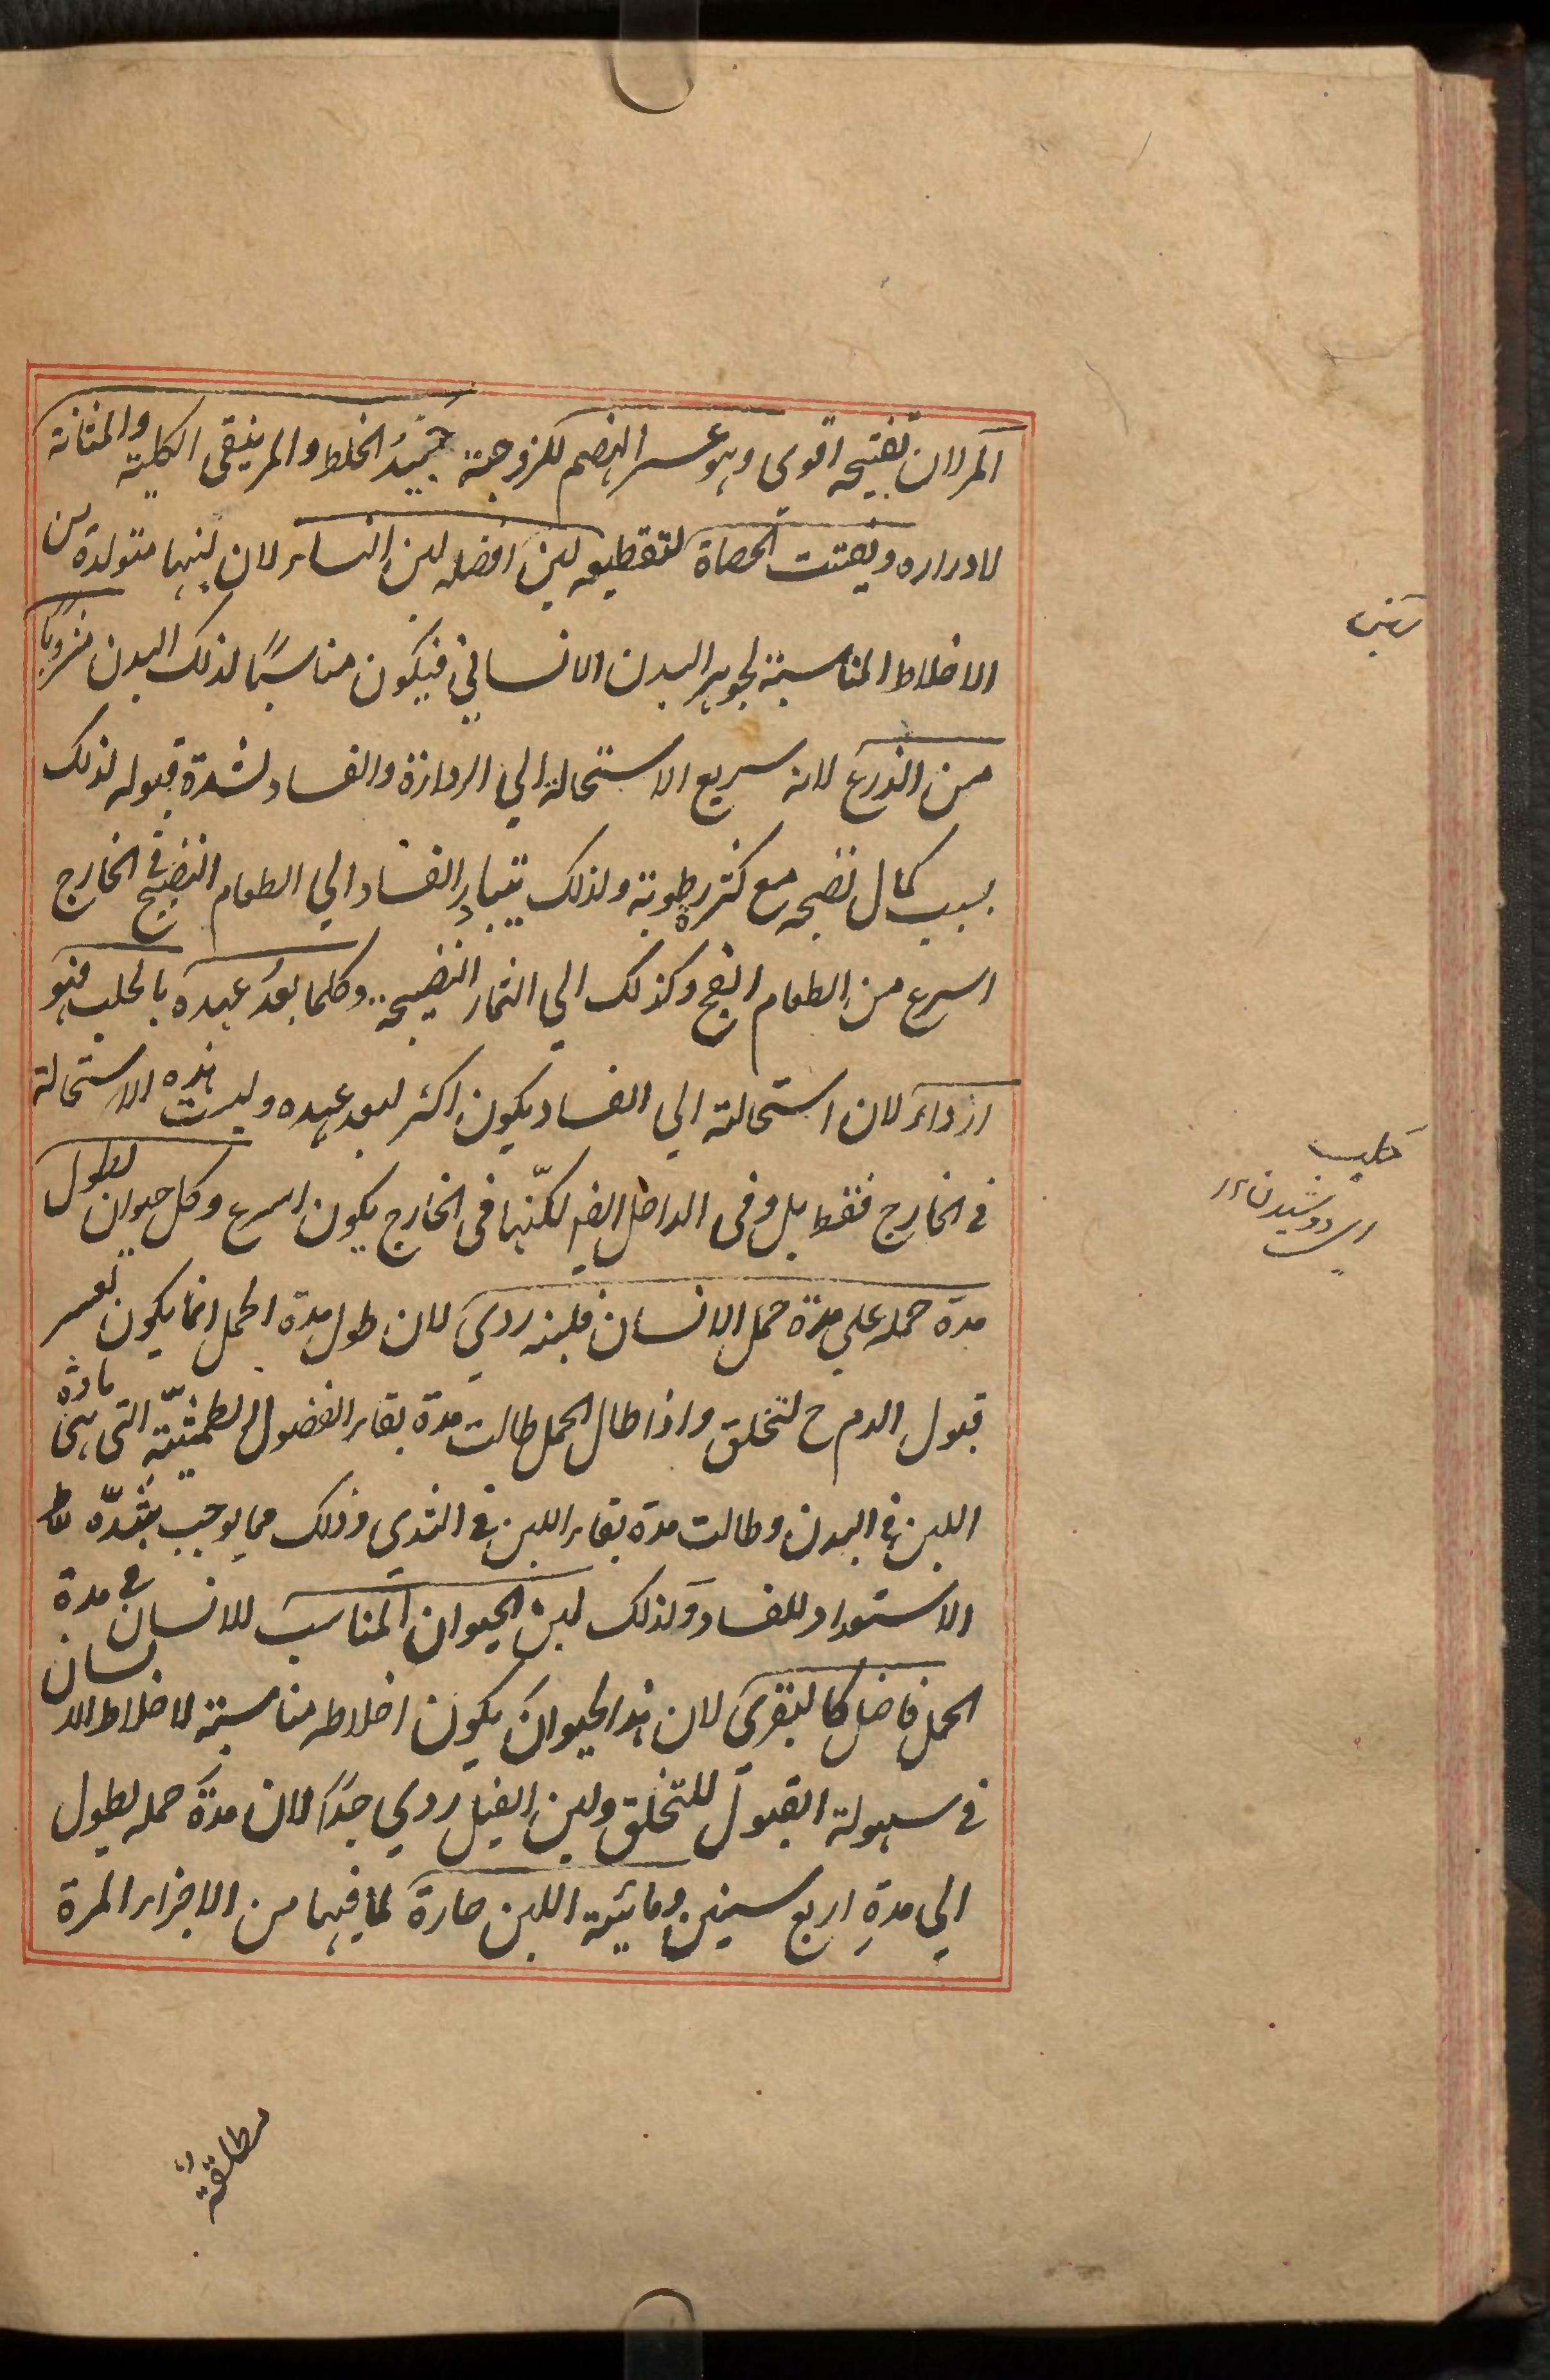 المر لان تفتيحه اقوى وهو عسر الهضم للزوجة جيد الخلط والمر ينقى الكلية والمثانة
لادراره ويفتت الحصاة لتقطيعه لبن افضله لبن النساء لان لبنها متولدة من
الاخلاط المناسبة لجوهر البدن الانساني فيكون مناسبًا لذلك البدن مشروبا
من الذرع لانه سريع الاستحالة الي الرداءة والفساد لشدة قبوله لذلك
بسبب كمال نضجه مع كثرة رطوبة ولذلك يتبادر الفساد الي الطعام النضيج في الخارج
اسرع من الطعام الفج وكذلك الي الثمار النضيجة وكلما بعد عهده بالحلب فهو
ارداء لان استحالته الي الفساد يكون اكثر لبعد عهده وليست هذه الاستحالة
في الخارج فقط بل وفى الداخل ايضا لكنّها فى الخارج يكون اسرع وكل حيوان لطول
مدة حمله علي مدة حمل الانسان فلبنه ردي لان طول مدة الحمل انما يكون لعسر
قبول الدم ح لتخلق واذا طال الحمل طالت مدة بقاء الفضول الطمثيّة التى هى مادة
اللبن في البدن وطالت مدة بقاء اللبن في الثدي وذلك مما يوجب بشدّة
الاستعداد للفساد وكذلك لبن الحيوان المناسب للانسان في مدة
الحمل فاضل كالبقرى لان هذا الحيوان يكون اخلاطه مناسبة لاخلاط الانسان
في سهولة القبول للتخلق ولبن الفيل ردي جدًا لان مدة حمله يطول
الي مدةِ اربع سنين ومائية اللبن حارة لما فيها من الاجزاء المرة
مطلقة
حليب
دوشيدن